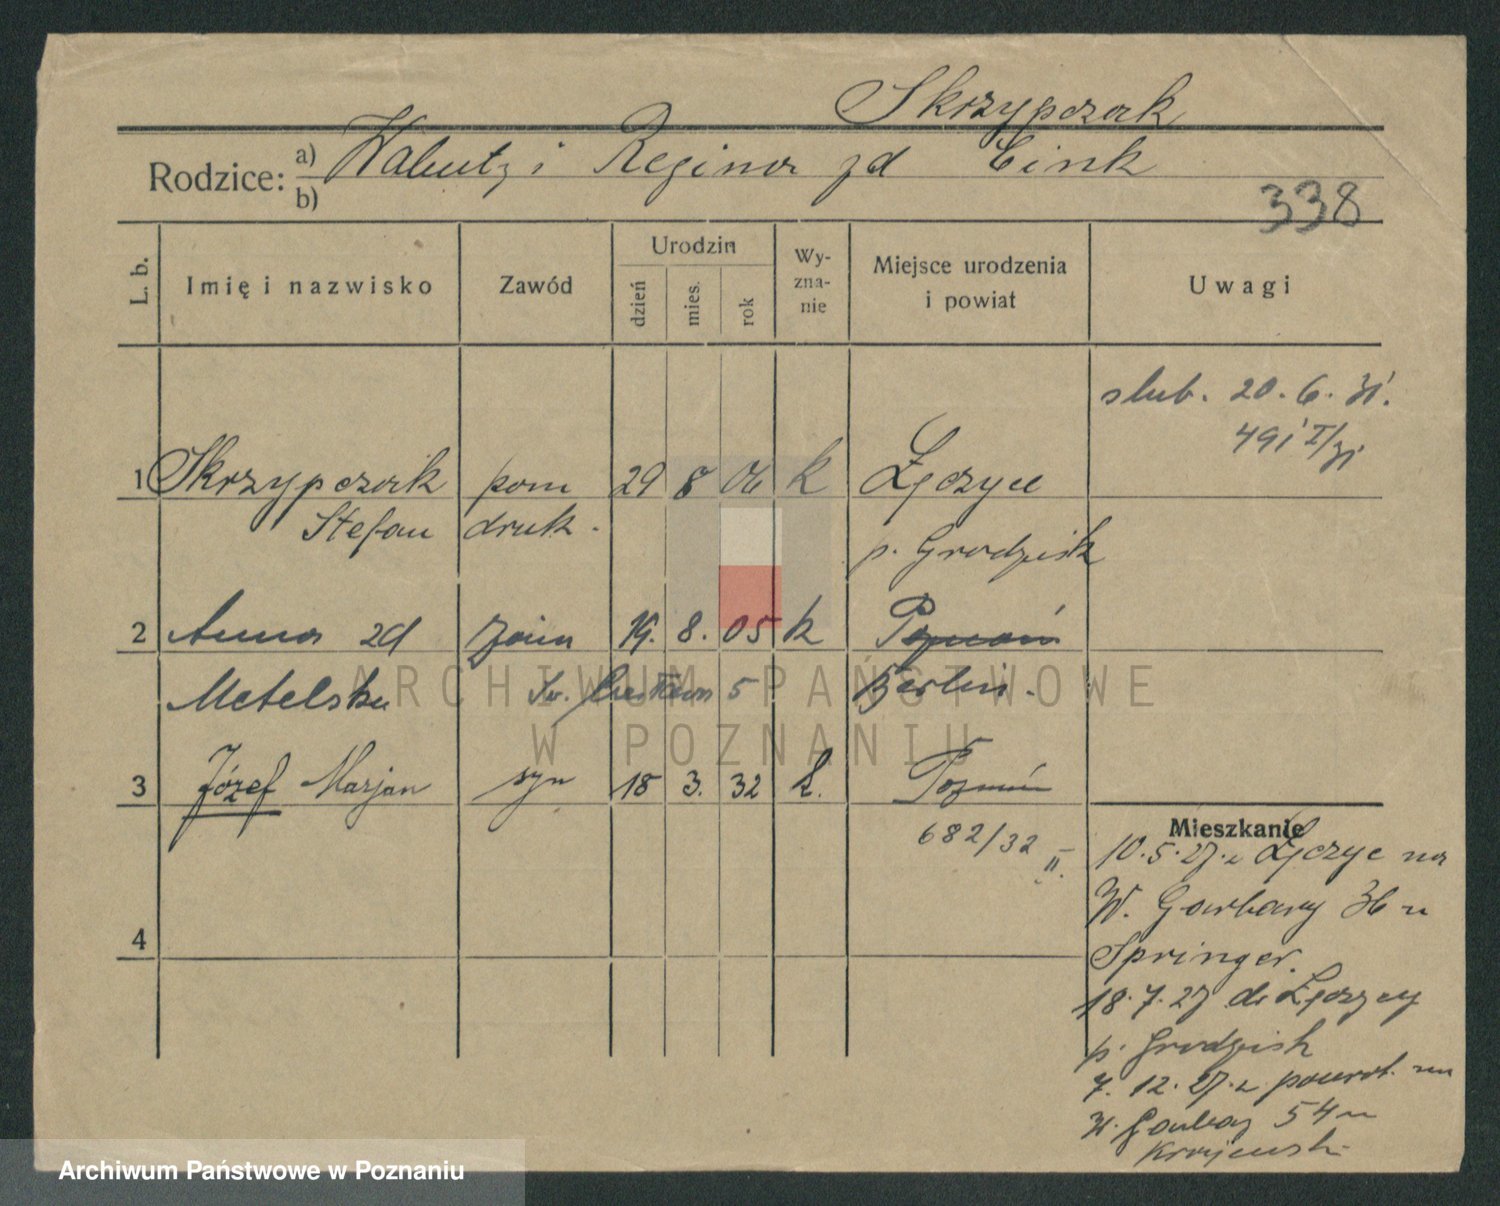 Skrzypczak
Rodzice: a) Walenty i Regina zd Cink
b)
338
L. b. Imię i nazwisko Zawód Urodzin dzień mies. rok Wy-zna-nie Miejsce urodzenia i powiat Uwagi
slub. 20. 6. 31.
491 I/31
1 Skrzypczak pom 29 8 06 k Łęczyce
Stefan druk. p. Grodzisk
2 Anna zd żona 19. 8. 05 k Poznań
Metelska Św. 5 Berlin.
ARCHIWUM PAŃSTWOWE
W POZNANIU
3 Józef Marjan syn 18 3. 32 k. Poznań
682/32 II.
Mieszkanie
10.5.27. z Łęczyc na
W. Garbary 36 u
Springer.
4
18.7.27 do Łęczycy
p. Grodzisk
7. 12. 27. z powrot. na
W. Garbary 54 u
Krajewski
Archiwum Państwowe w Poznaniu